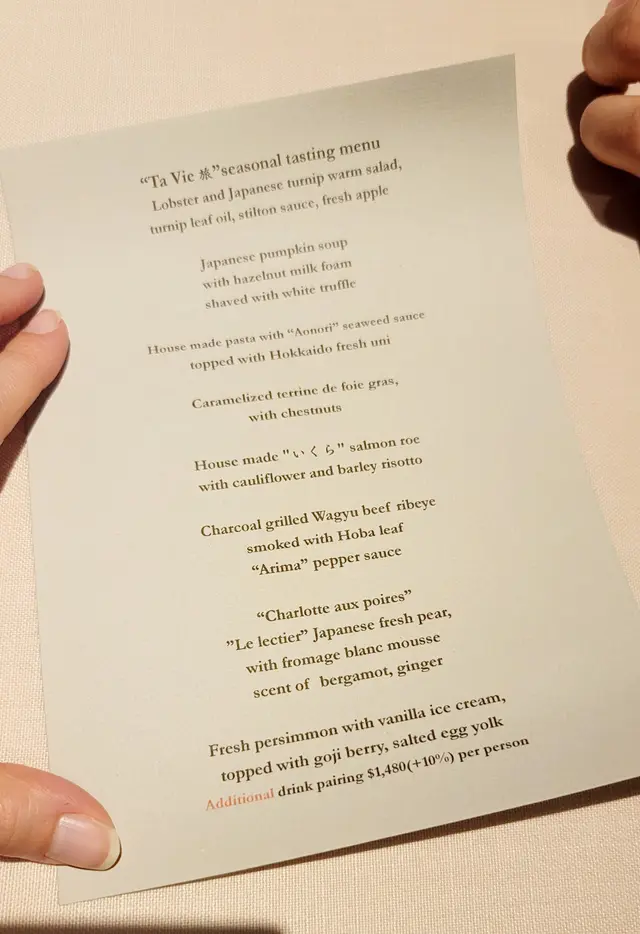 “Ta Vie 旅”seasonal tasting menu
Lobster and Japanese turnip warm salad,
turnip leaf oil, stilton sauce, fresh apple
Japanese pumpkin soup
with hazelnut milk foam
shaved with white truffle
House made pasta with “Aonori” seaweed sauce
topped with Hokkaido fresh uni
Caramelized terrine de foie gras,
with chestnuts
House made "いくら" salmon roe
with cauliflower and barley risotto
Charcoal grilled Wagyu beef ribeye
smoked with Hoba leaf
“Arima” pepper sauce
“Charlotte aux poires”
”Le lectier” Japanese fresh pear,
with fromage blanc mousse
scent of bergamot, ginger
Fresh persimmon with vanilla ice cream,
topped with goji berry, salted egg yolk
Additional drink pairing $1,480(+10%) per person